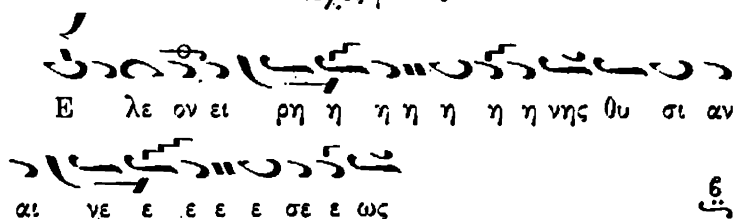 Ε λε ον ει ρη η η η η η η νης θυ σι αν
αι νε ε ε ε ε σε ε ως